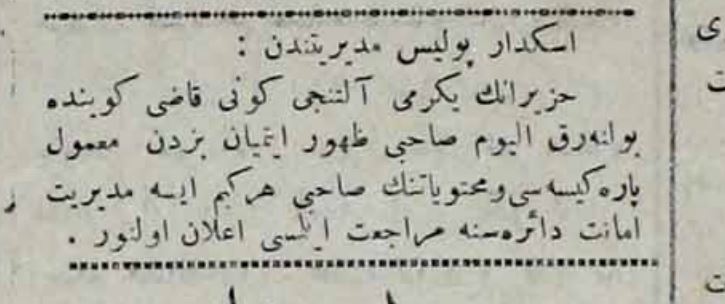 اسكدار پوليس مديريتندن :
حزيرانك يكرمى آلتنجى كونى قاضى كوينده
بولنه‌رق اليوم صاحبى ظهور ايتميان بزدن معمول
پاره كيسه‌سى و محتوياتنك صاحبى هركيم ايسه مديريت
امانت دائره‌سنه مراجعت ايتمسى اعلان اولنور .